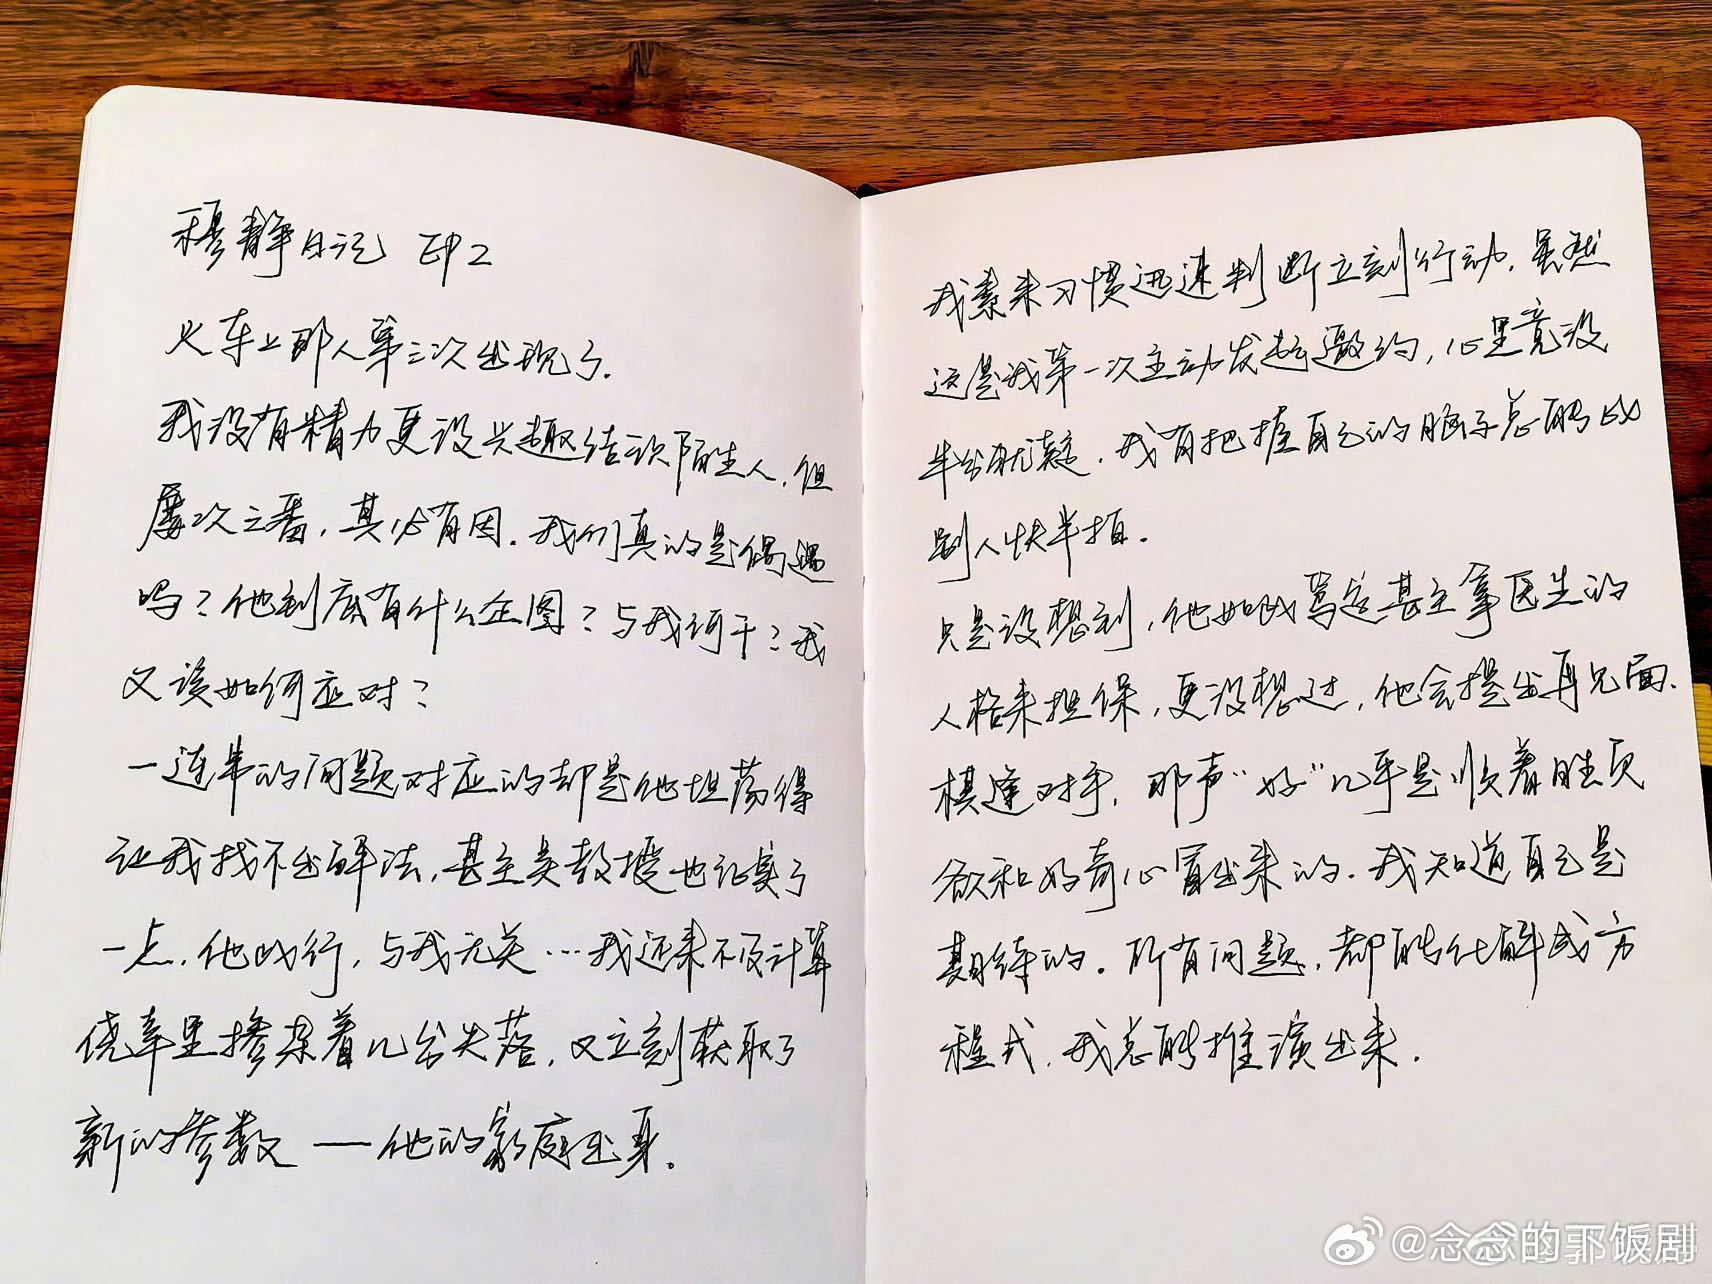 穆静日记 EP2
火车上那人第三次出现了.
我没有精力更没兴趣结识陌生人,但
屡次三番,其必有因.我们真的是偶遇
吗?他到底有什么企图?与我何干?我
又该如何应对?
一连串的问题对应的却是他坦荡得
让我找不出解法,甚至吴教授也证实了
一点.他此行,与我无关…我还来不及计算
侥幸里掺杂着几分失落,又立刻获取了
新的参数——他的家庭出身.
我素来习惯迅速判断立刻行动.虽然
这是我第一次主动发起邀约,心里竟没
半分犹疑.我有把握自己的脑子总能比
别人快半拍.
只是没想到,他如此笃定甚至拿医生的
人格来担保,更没想过,他会提出再见面.
棋逢对手,那声“好”几乎是顺着胜负
欲和好奇心冒出来的.我知道自己是
期待的.所有问题,都能化解成方
程式,我总能推演出来.
@念念的郭饭剧